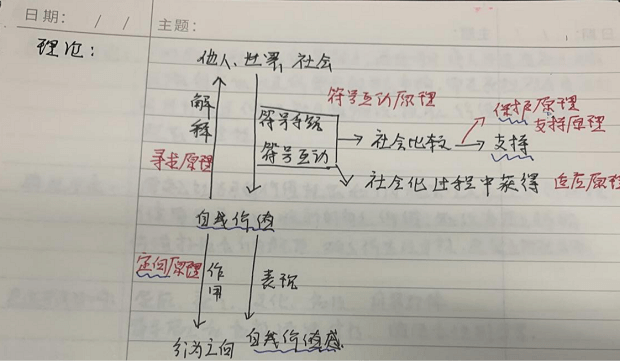 日期: / / 主题:
理论:
他人、世界、社会
符号互动原理
保护原理
支持原理
解释
符号传络
符号互动
社会比较
支持
寻求原理
社会化过程中获得 适应原理
自我价值
定向原理
作用
表现
行为定向 自我价值感